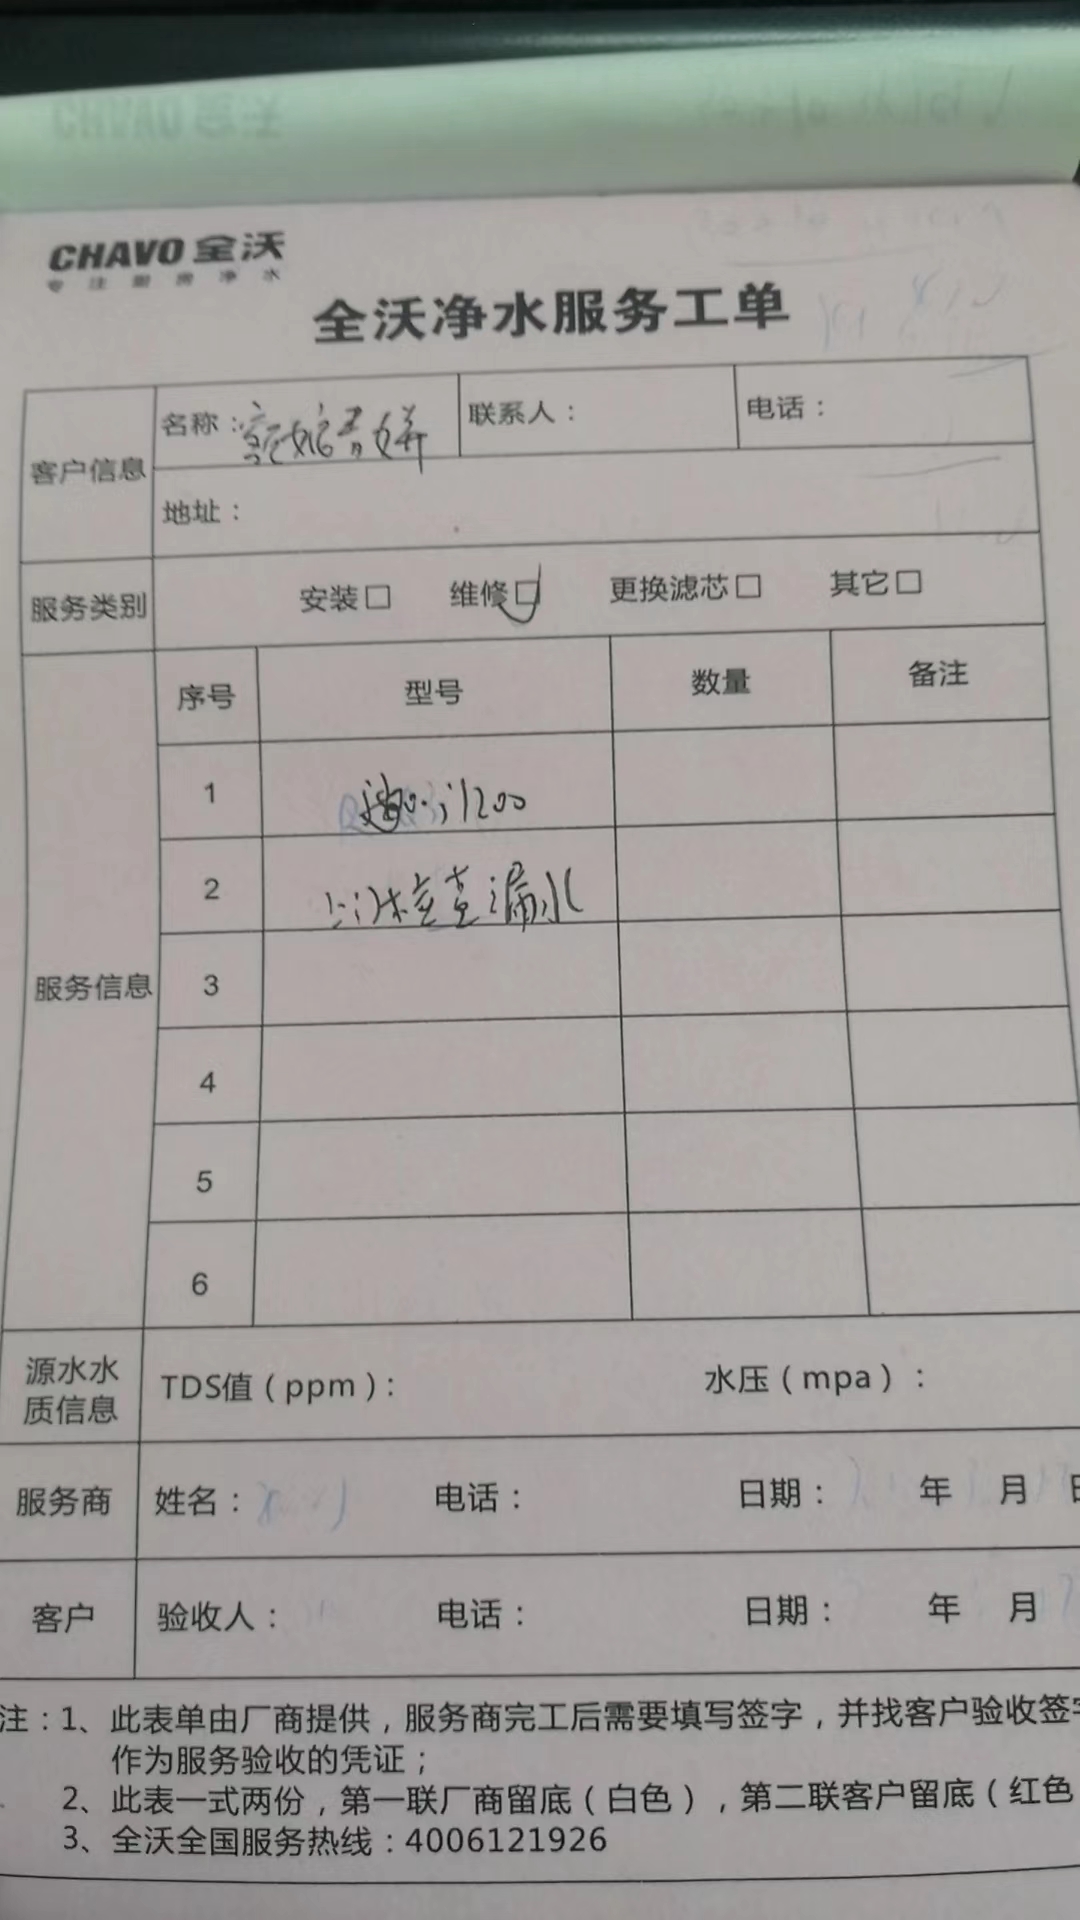 CHAVO 全沃
专注厨房净水
全沃净水服务工单
客户信息
名称：
联系人：
电话：
地址：
服务类别
安装□ 维修□ 更换滤芯□ 其它□
服务信息
序号 型号 数量 备注
1
2 上门检查漏水
3
4
5
6
源水水质信息
TDS值（ppm）：
水压（mpa）：
服务商
姓名：
电话：
日期： 年 月 日
客户
验收人：
电话：
日期： 年 月
注：1、此表单由厂商提供，服务商完工后需要填写签字，并找客户验收签字
作为服务验收的凭证；
2、此表一式两份，第一联厂商留底（白色），第二联客户留底（红色
3、全沃全国服务热线：4006121926